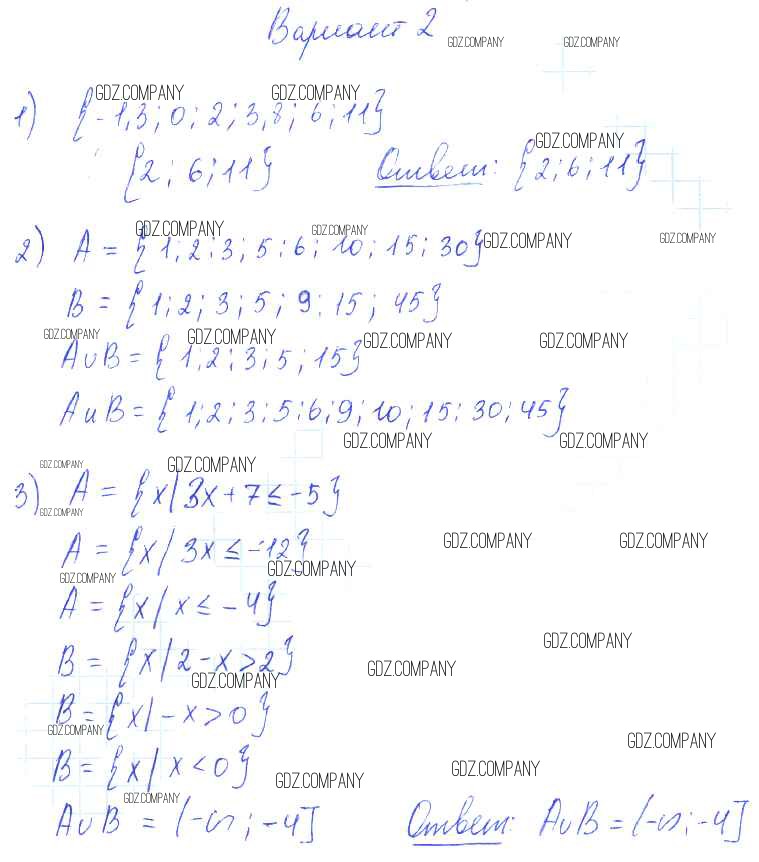 Вариант 2
GDZ.COMPANY GDZ.COMPANY
GDZ.COMPANY GDZ.COMPANY
1) {-1,3; 0; 2; 3,8; 6; 11}
GDZ.COMPANY
{2; 6; 11} Ответ: {2; 6; 11}
GDZ.COMPANY GDZ.COMPANY GDZ.COMPANY GDZ.COMPANY
2) A = {1; 2; 3; 5; 6; 10; 15; 30}
B = {1; 2; 3; 5; 9; 15; 45}
GDZ.COMPANY GDZ.COMPANY GDZ.COMPANY GDZ.COMPANY
A∪B = {1; 2; 3; 5; 15}
A и B = {1; 2; 3; 5; 6; 9; 10; 15; 30; 45}
GDZ.COMPANY GDZ.COMPANY
GDZ.COMPANY GDZ.COMPANY
3) A = {x | 3x + 7 ≤ -5}
GDZ.COMPANY
GDZ.COMPANY GDZ.COMPANY
A = {x | 3x ≤ -12}
GDZ.COMPANY GDZ.COMPANY
A = {x | x ≤ -4}
GDZ.COMPANY
B = {x | 2 - x > 2}
GDZ.COMPANY GDZ.COMPANY
B = {x | -x > 0}
GDZ.COMPANY GDZ.COMPANY
B = {x | x < 0}
GDZ.COMPANY GDZ.COMPANY
GDZ.COMPANY
A∪B = (-∞; -4] Ответ: A∪B = (-∞; -4]